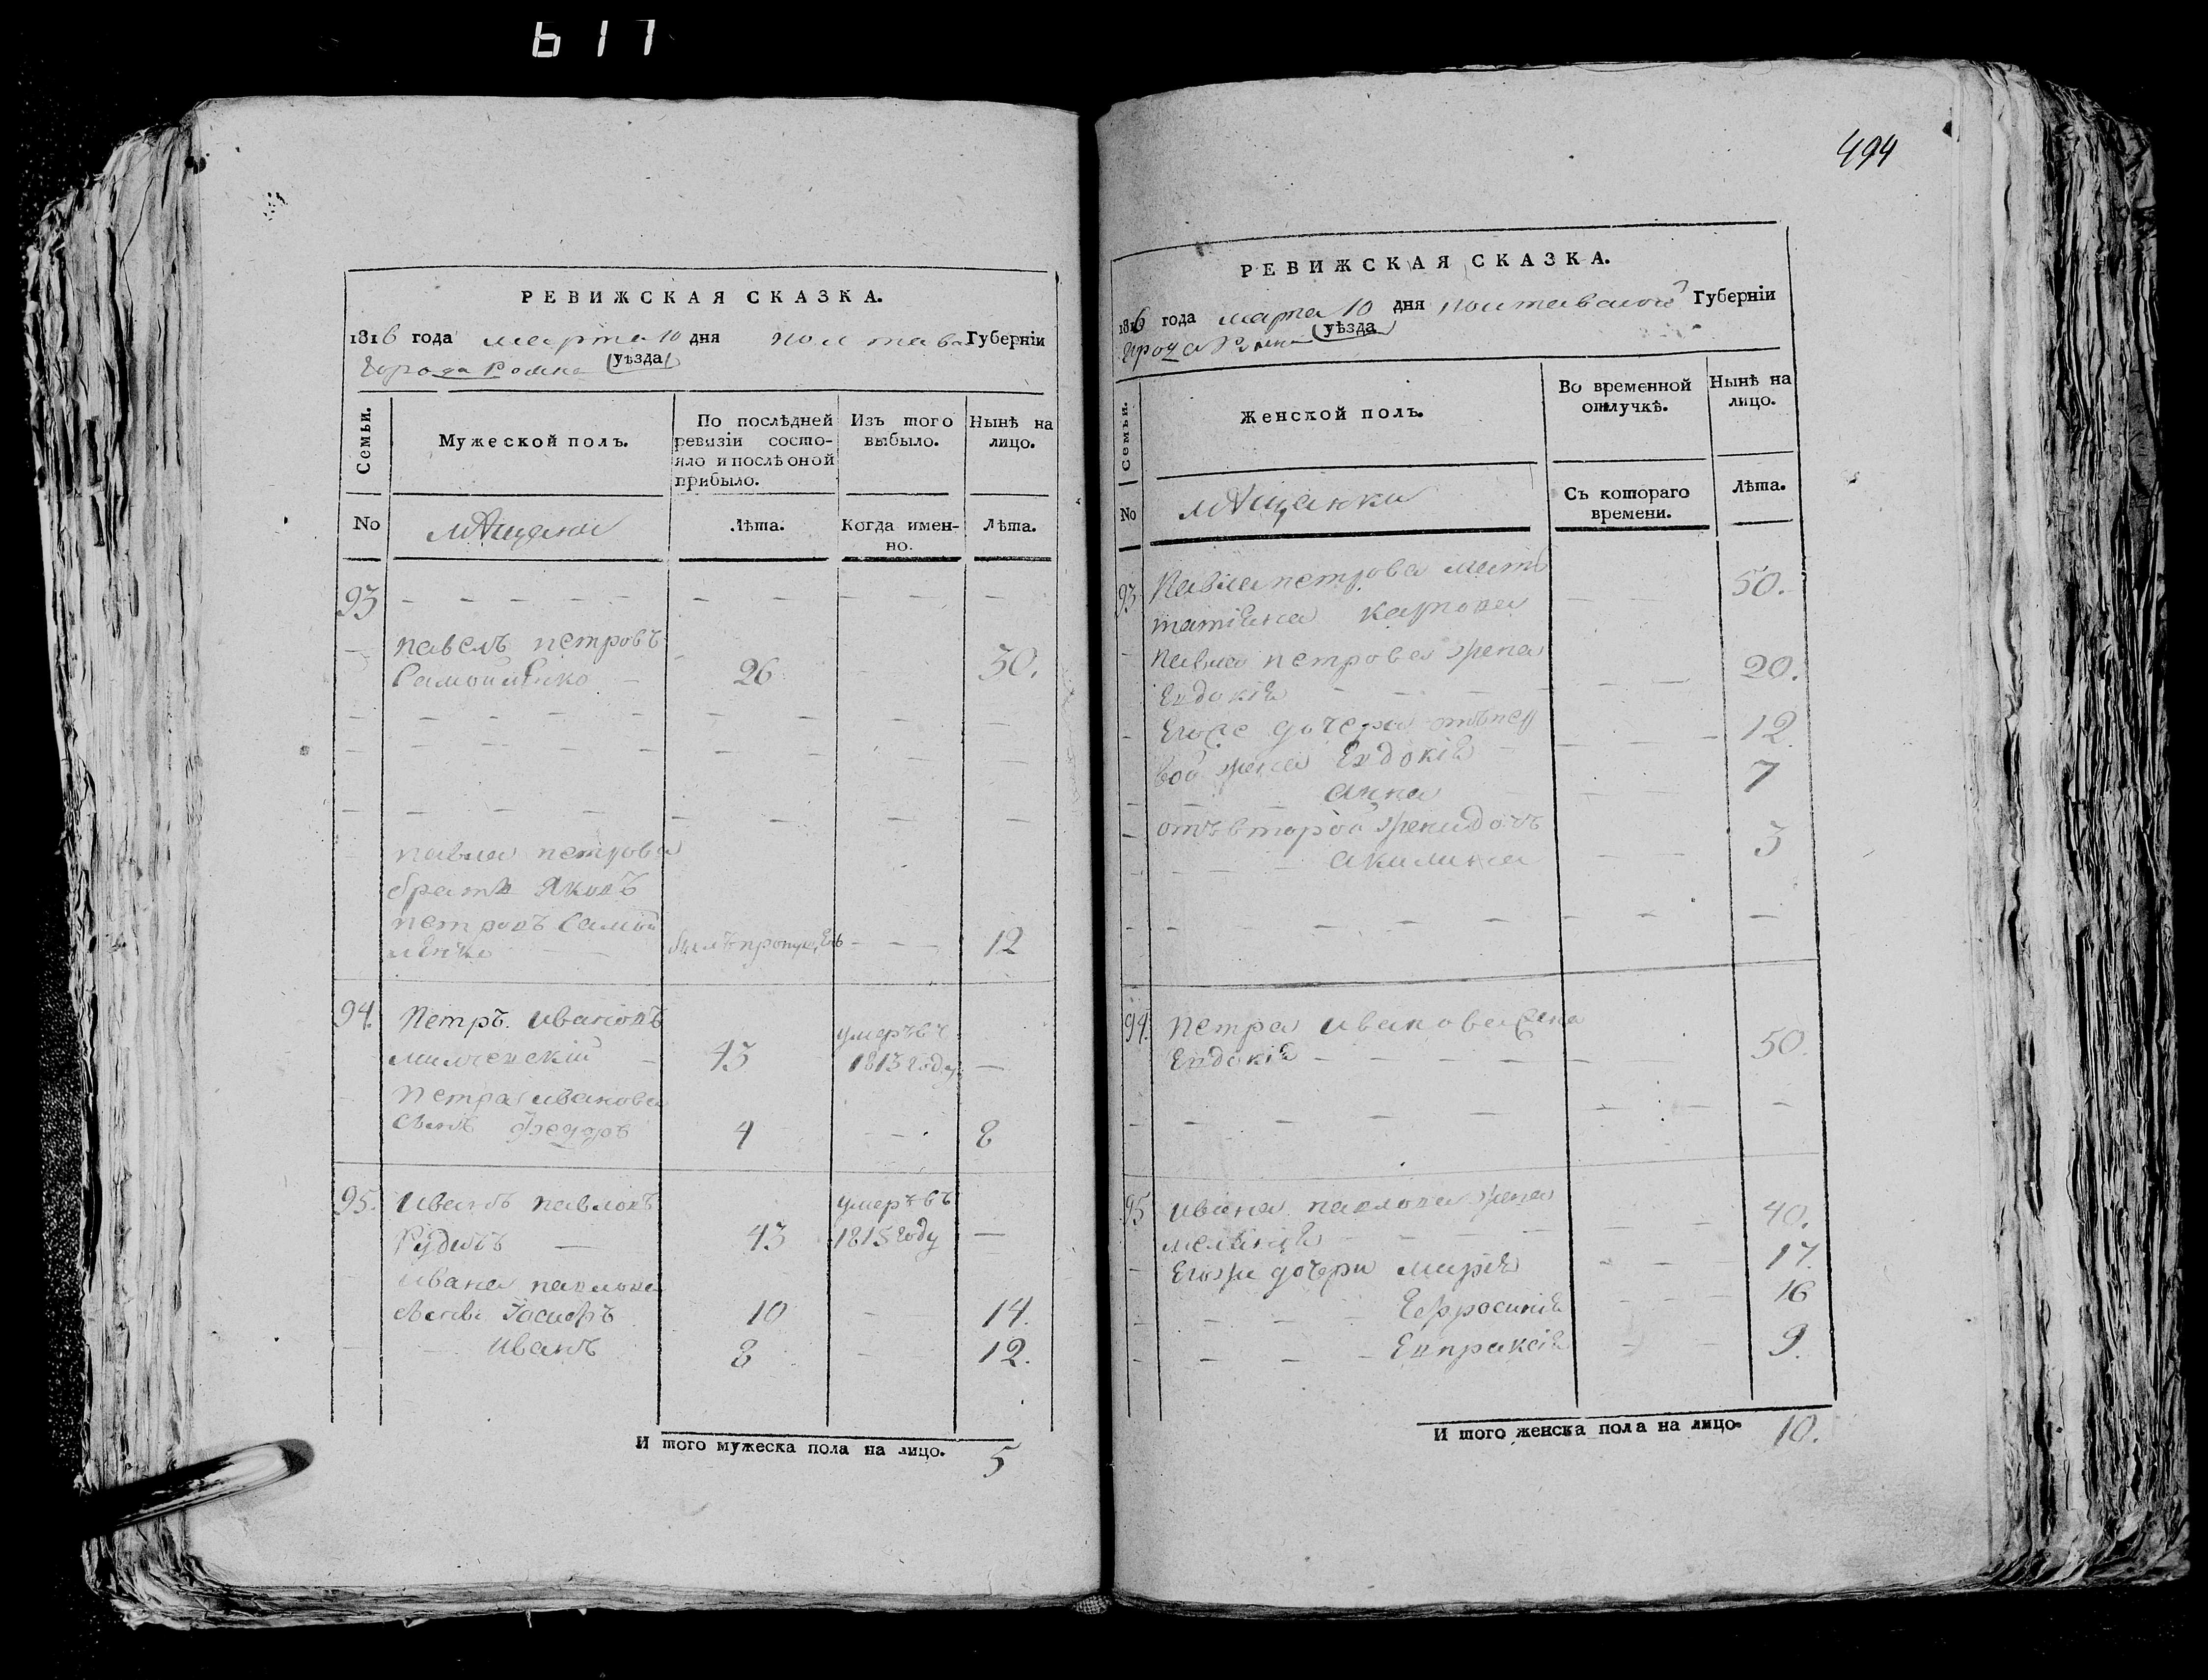 617
РЕВИЖСКАЯ СКАЗКА.
1816 года марта 10 дня Полтавс Губерніи
Города Ромна (уѣзда)
Семьи.
Мужеской полъ.
По послѣдней ревизіи состо-
яло и послѣ оной
прибыло.
Изъ того
выбыло.
Нынѣ на
лицо.
No
мѣщане
Лѣта.
Когда имен-
но.
Лѣта.
93
павелъ петровъ
Самойленко 26 30.
павла петрова
братъ Яковъ
петровъ Самой
ленко былъ пропущенъ 12
94. Петръ ивановъ умеръ въ
милчевскій 45 1813 году
Петра иванова
сынъ федоръ 4 8
95. иванъ павловъ умеръ въ
Рудичъ 43 1815 году
ивана павлова
сынъ Іосифъ 10 14.
иванъ 8 12.
И того мужеска пола на лицо. 5
494
РЕВИЖСКАЯ СКАЗКА.
1816 года марта 10 дня полтавской Губерніи
города Ромна (уѣзда)
Семьи.
Женской полъ.
Во временной
отлучкѣ.
Нынѣ на
лицо.
No
мѣщанки
Съ котораго
времени.
Лѣта.
93 Павла петрова мать 50.
татіана карпова
павла петрова жена
Евдокія 20.
Егоже дочери отъ пер
вой жены Евдокія 12
анна 7
отъ второй жены дочь
акилина 3
94. Петра иванова жена
Евдокія 50.
95 ивана павлова жена
меланія 40.
Егоже дочери марія 17.
Ефросинія 16
Евпраксія 9.
И того женска пола на лицо. 10.